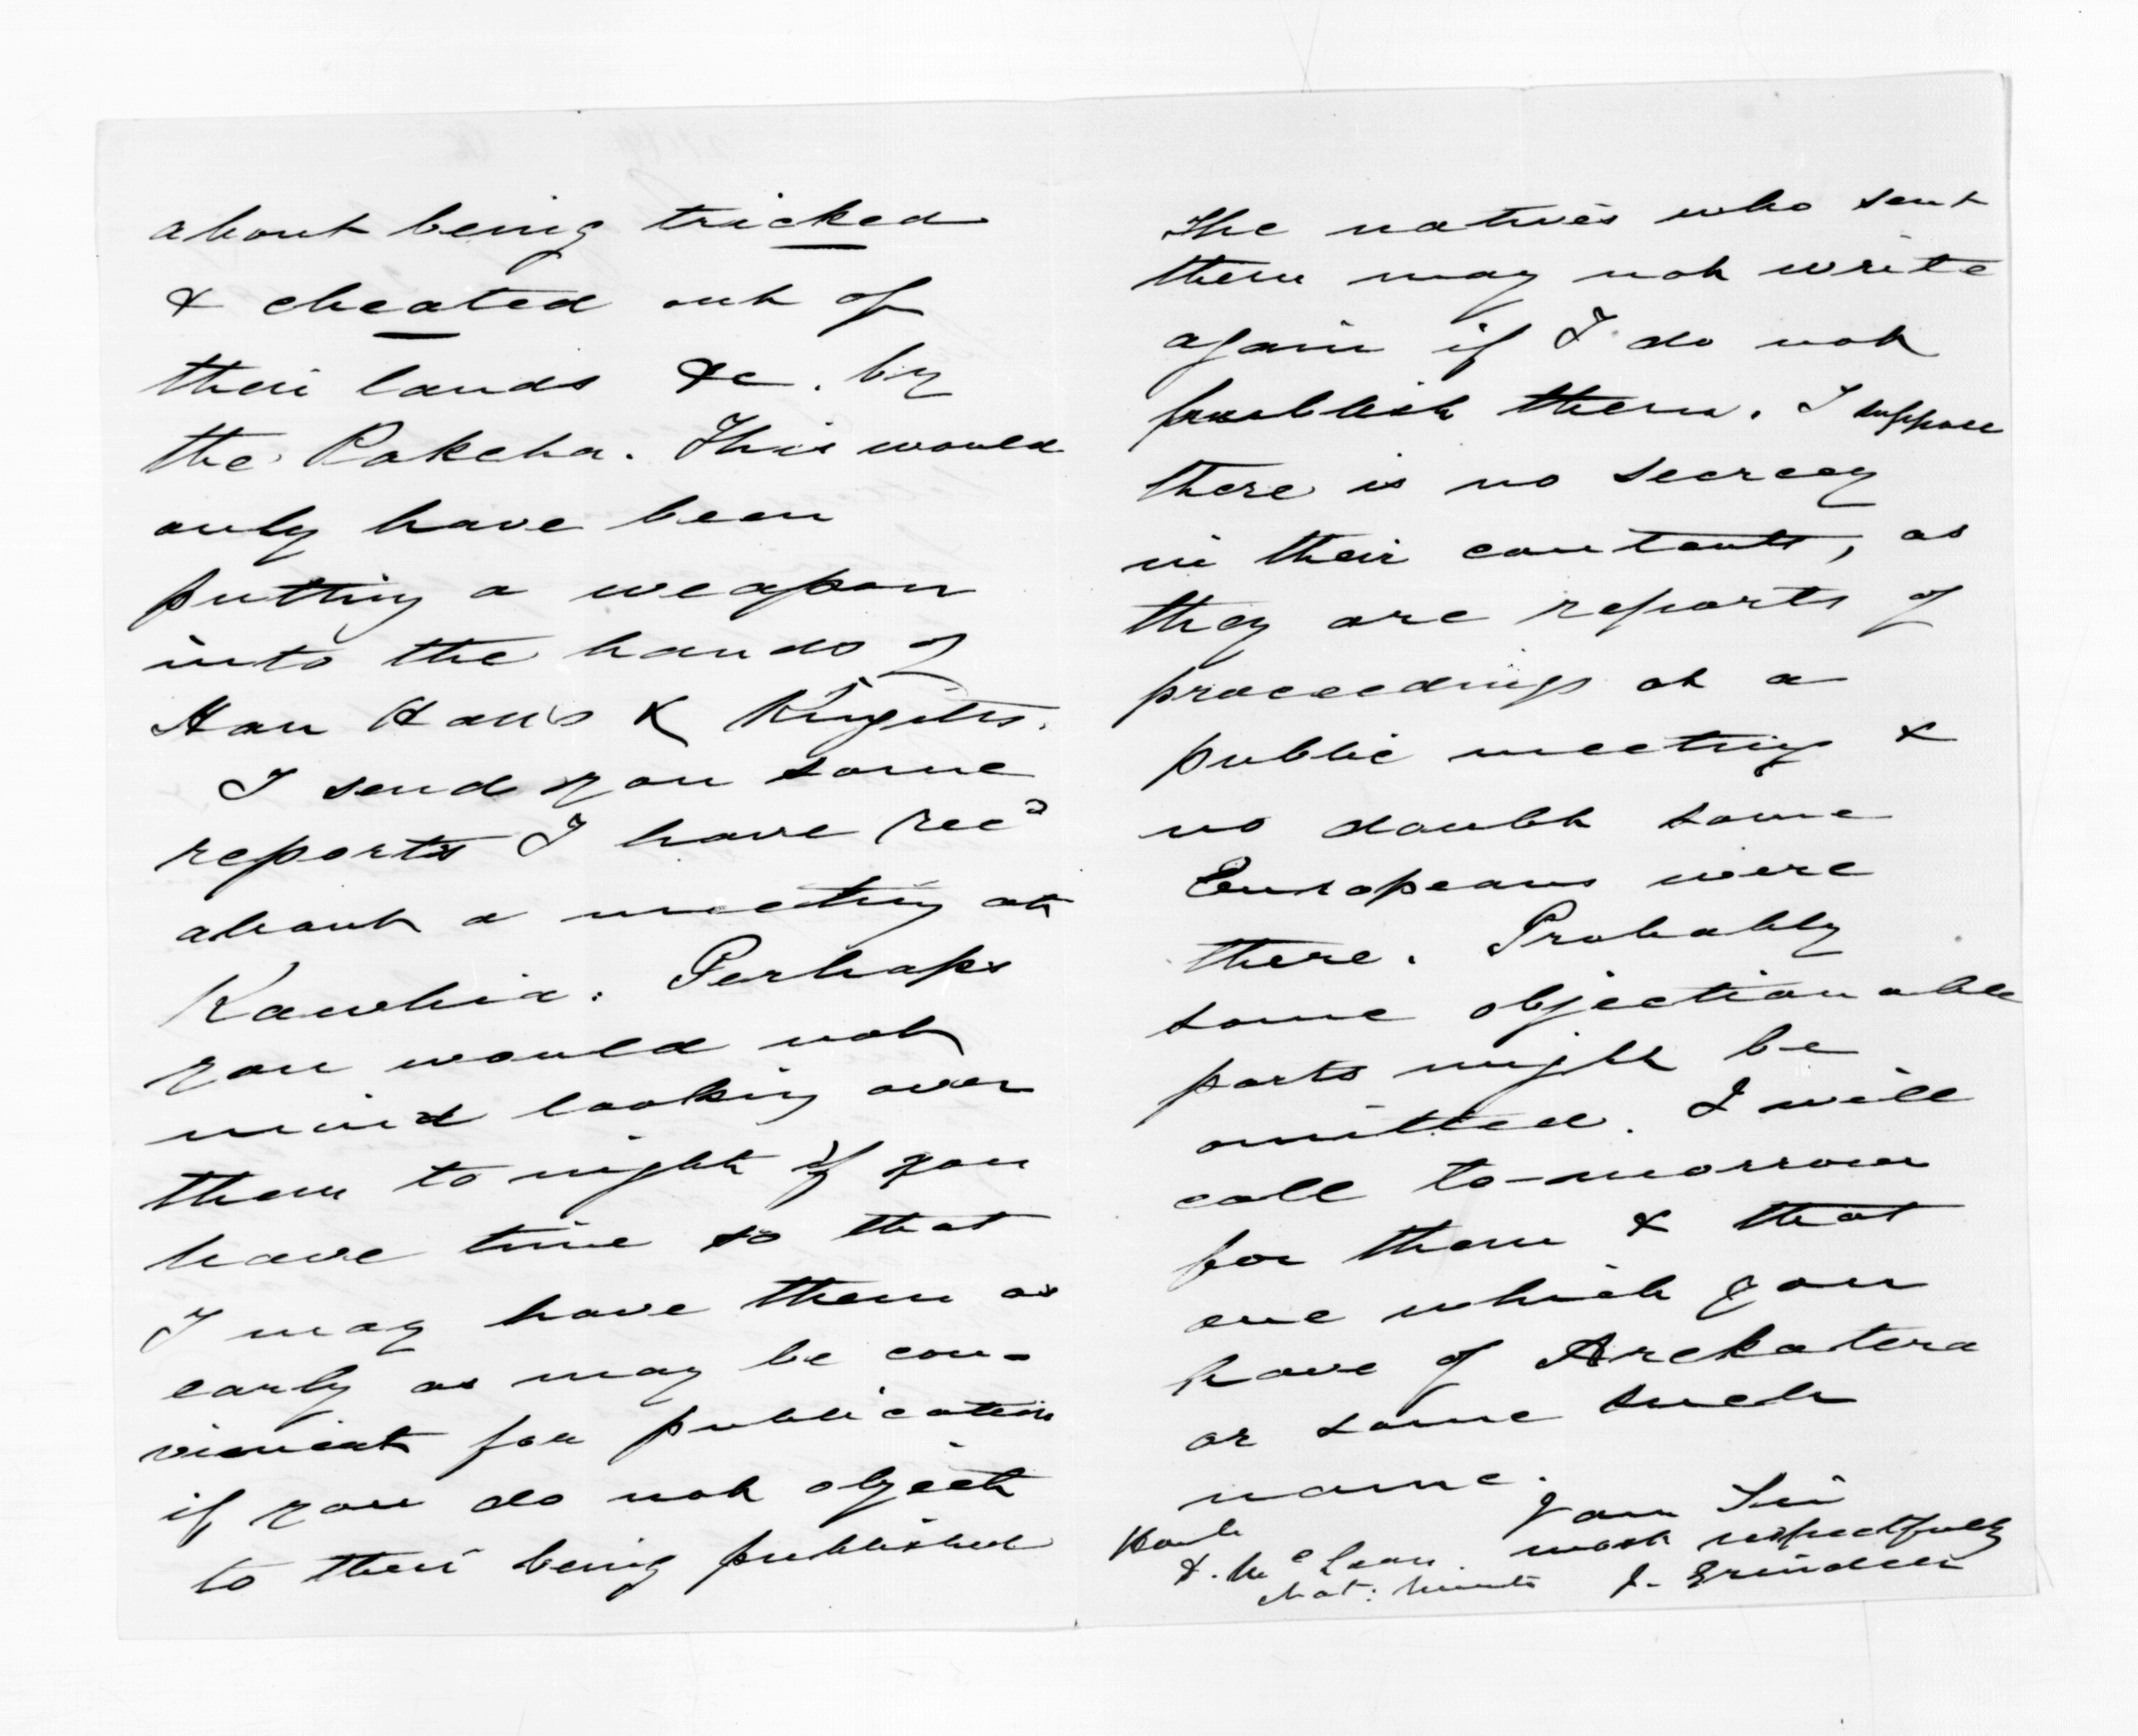 about being tricked
& cheated out of
their lands &c. by
the Pakeha. This would
only have been
putting a weapon
into the hands of
Hau Hau's & Kingites.
I send you some
reports I have recd
about a meeting at
Kawhia. Perhaps
you would not
mind looking over
them to night if you
have time so that
I may have them as
early as may be con-
vienient for publication
if you do not object
to their being published
The natives who sent
them may not write
again if I do not
publish them. I suppose
there is no secrecy
in their contents, as
they are reports of
proceedings at a
public meeting &
no doubt some
Europeans were
there. Probably
some objectionable
parts might be
omitted. I will
call to-morrow
for them & that
one which you
have of Arekatera
or some such
name.
I am Sir
most respectfully
J. Grindell
Honble
D. McLean
Nat: Minister